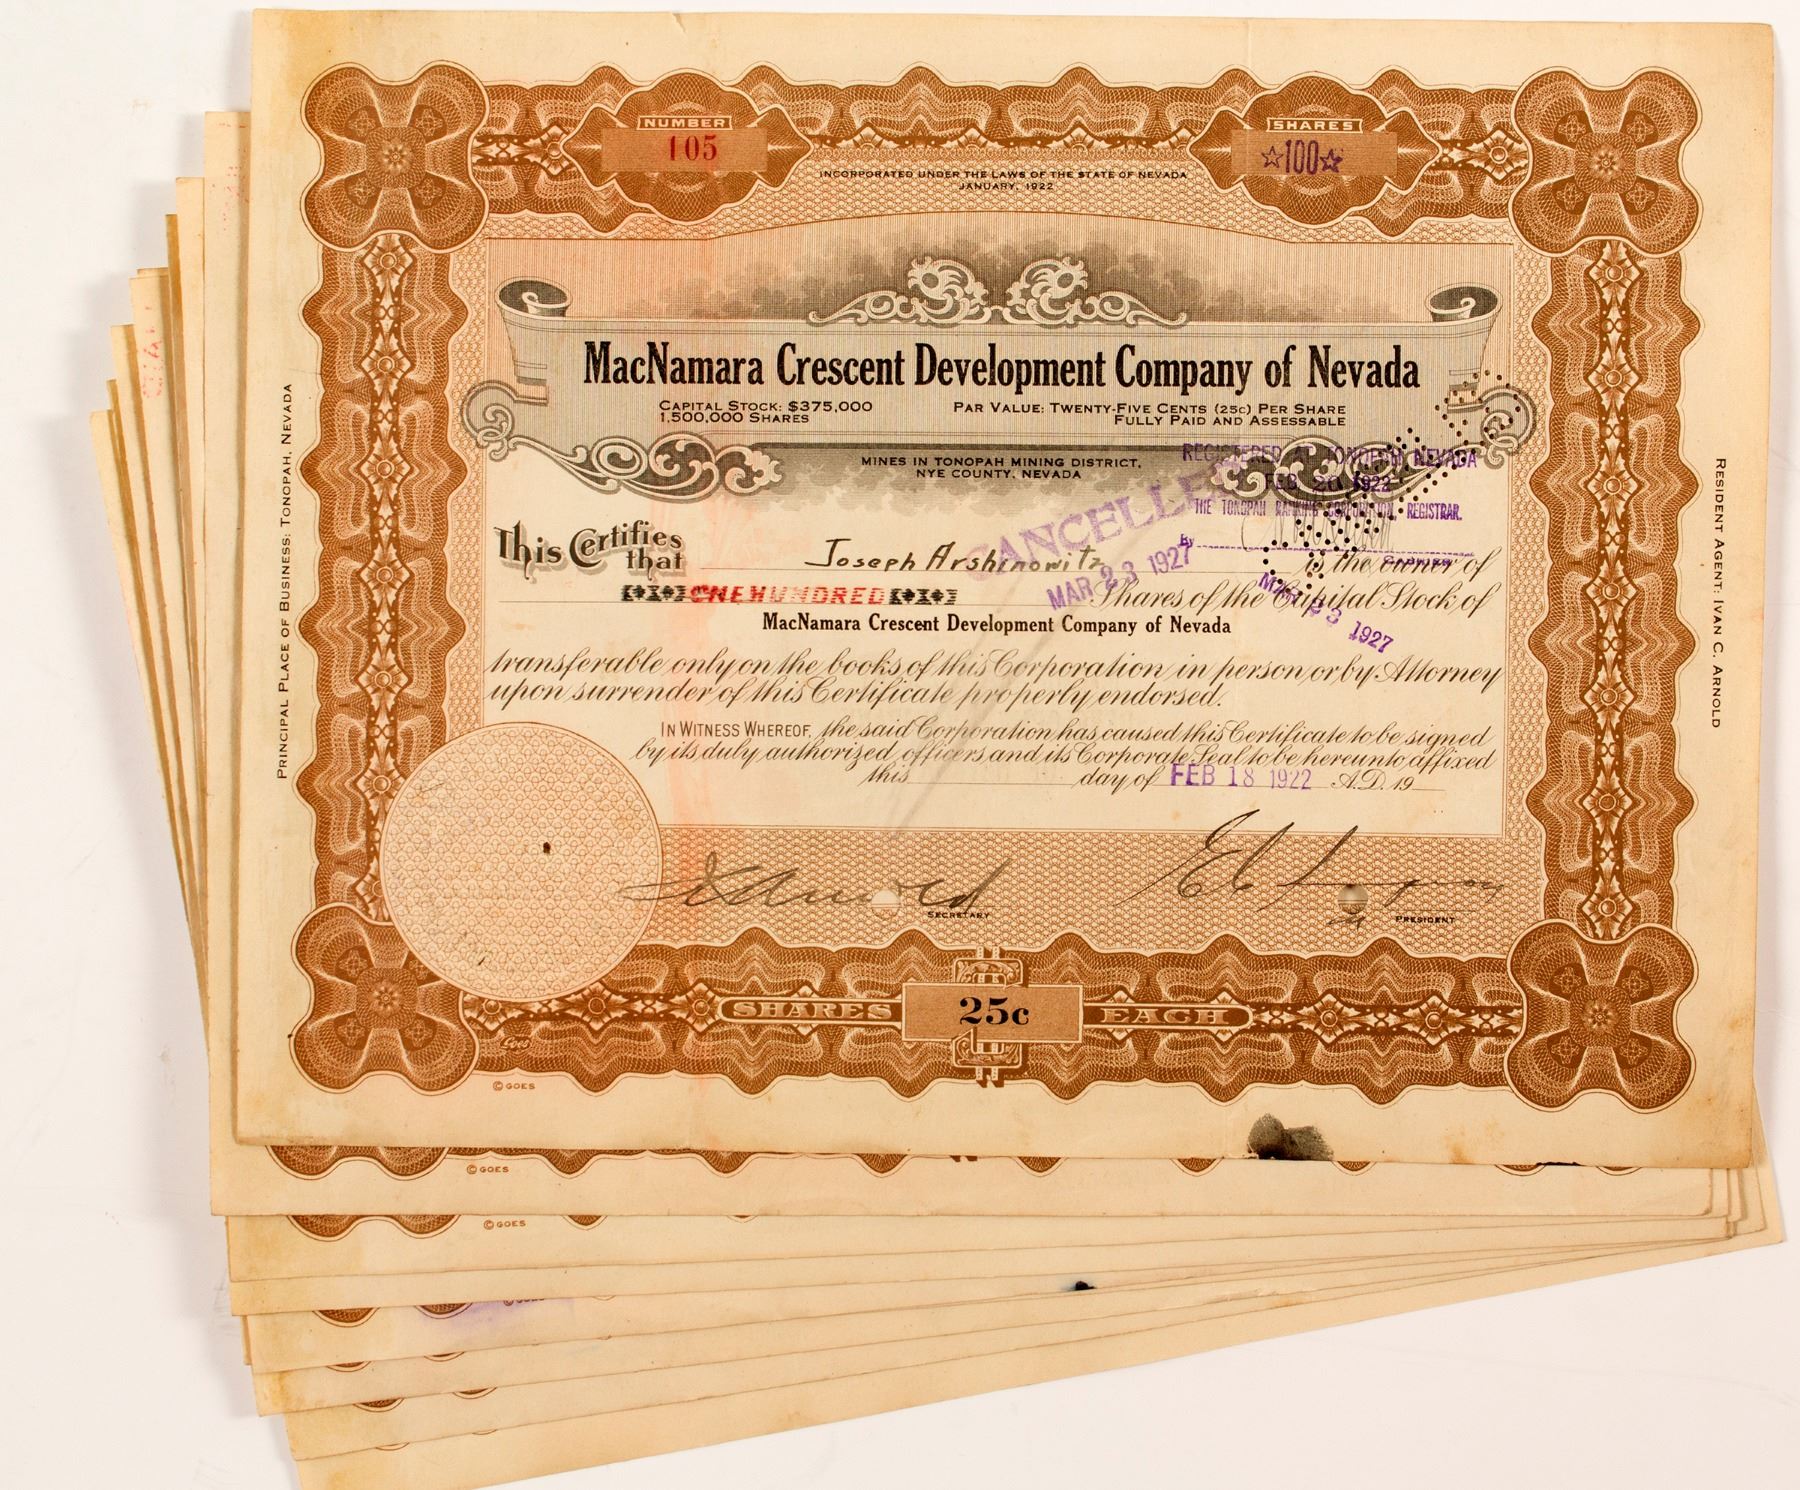 NUMBER
105
SHARES
☆100☆
INCORPORATED UNDER THE LAWS OF THE STATE OF NEVADA
JANUARY, 1922
MacNamara Crescent Development Company of Nevada
CAPITAL STOCK: $375,000
1,500,000 SHARES
PAR VALUE: TWENTY-FIVE CENTS (25c) PER SHARE
FULLY PAID AND ASSESSABLE
MINES IN TONOPAH MINING DISTRICT,
NYE COUNTY, NEVADA
REGISTERED AT TONOPAH NEVADA
FEB 20 1922
THE TONOPAH BANKING CORPORATION, REGISTRAR.
By
CASHIER
CANCELLED
MAR 23 1927
MAR 23 1927
This Certifies that Joseph Arshinowitz is the owner of
ONE HUNDRED Shares of the Capital Stock of
MacNamara Crescent Development Company of Nevada
transferable only on the books of this Corporation in person or by Attorney
upon surrender of this Certificate properly endorsed.
IN WITNESS WHEREOF, the said Corporation has caused this Certificate to be signed
by its duly authorized officers and its Corporate Seal to be hereunto affixed
this day of FEB 18 1922 A.D. 19
SECRETARY
PRESIDENT
SHARES 25c EACH
Goes
© GOES
PRINCIPAL PLACE OF BUSINESS: TONOPAH, NEVADA
RESIDENT AGENT: IVAN C. ARNOLD
© GOES
© GOES